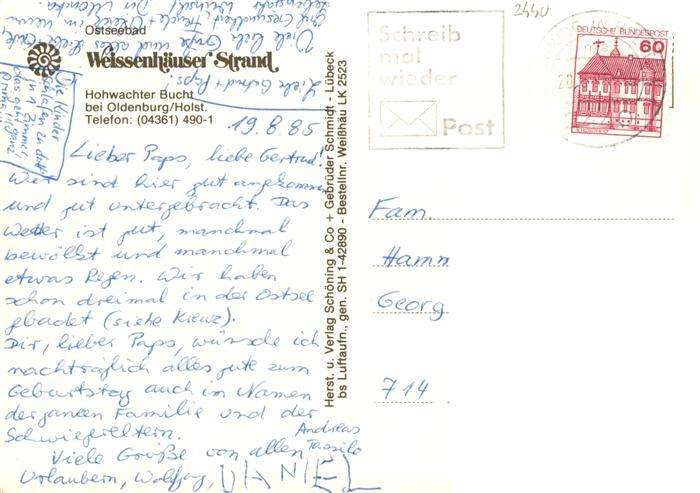 Ostseebad
Weissenhäuser Strand
Hohwachter Bucht
bei Oldenburg/Holst.
Telefon: (04361) 490-1
19.8.85
Lieber Paps, liebe Gertrud!
Wir sind hier gut angekommen
und gut untergebracht. Das
Wetter ist gut, manchmal
bewölkt und manchmal
etwas Regen. Wir haben
schon dreimal in der Ostsee
gebadet (siehe Kreuz).
Dir, lieber Paps, wünsche ich
nachträglich alles gute zum
Geburtstag auch im Namen
der ganzen Familie und der
Schwiegereltern.
Viele Grüße von allen
Urlaubern, Wolfg,
Andreas
Tassilo
DANIEL
Die Kinder
schlafen zu dritt
in 1 Zimmer,
Liebe Gertrud + Paps,
Viele liebe Grüße und alles
Herst. u. Verlag Schöning & Co + Gebrüder Schmidt - Lübeck
bs Luftaufn., gen. SH 1-42890 - Bestellnr. Weißhäu LK 2523
Schreib
mal
wieder
Post
2440
DEUTSCHE BUNDESPOST
60
Fam.
Hamm
Georg
714